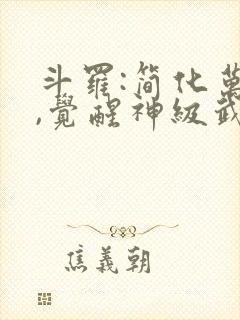 斗羅:簡化萬
,覺醒神級武
焦義朝